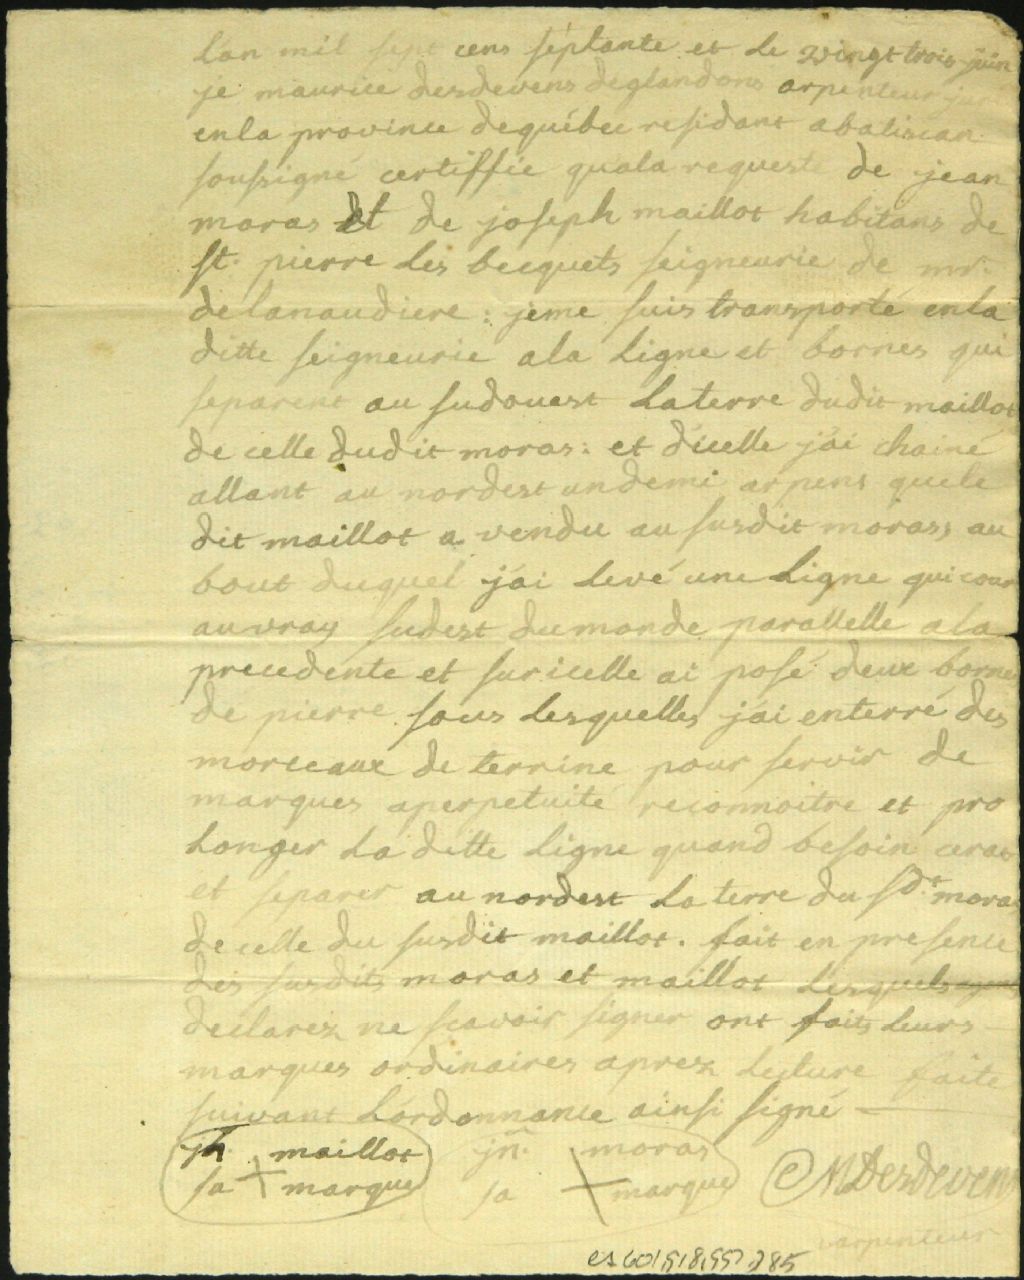 l'an mil sept cens séptante et le vingt trois juin
je maurice desdevens deglandons arpenteur juré
en la province dequébec residant abatiscan
soussigné certiffie quala requeste de jean
moras et de joseph maillot habitans de
st. pierre les becquets seigneurie de mr.
delanaudiere : jeme suis transporté enla
ditte seigneurie ala ligne et bornes qui
separent au sudouest laterre dudit maillot
de celle dudit moras : et d'icelle j'ai chainé
allant au nordest undemi arpens quele
dit maillot a vendu au susdit moras, au
bout duquel j'ai levé une ligne qui cour
auvray sudest dumonde parallelle ala
precedente et suricelle ai posé deux bornes
de pierre sous lesquelles j'ai enterré des
morceaux de terrine pour servir de
marques aperpetuité reconnoitre et pro
longer la ditte ligne quand besoin cerat
et separer au nordest la terre du sdt. moras
decelle du susdit maillot. fait en presence
des susdits moras et maillot lesquels
declarez ne scavoir signer ont faits leurs
marques ordinaires aprez lecture faite
suivant l'ordonnance ainsi signé
jh. maillot jn. moras M Desdevens
sa + marque sa + marque
arpenteur